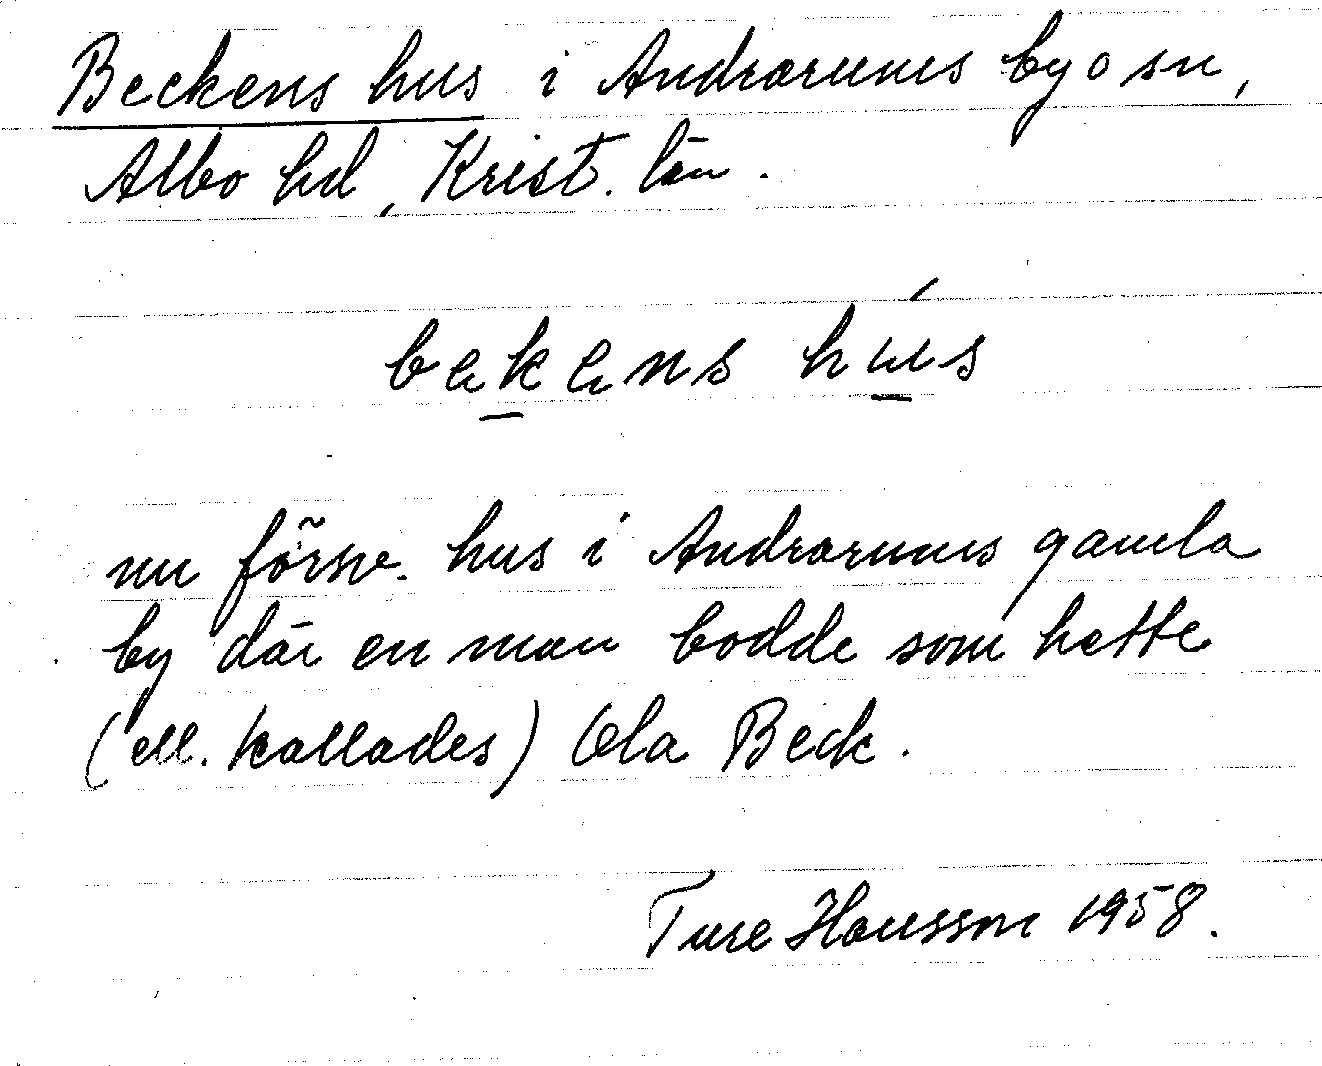 Beckens hus i Andrarums by o sn,
Albo hd, Krist. län.
bekens hús
nu försv. hus i Andrarums gamla
by där en man bodde som hette
(ell. kallades) Ola Beck.
Ture Hansson 1958.